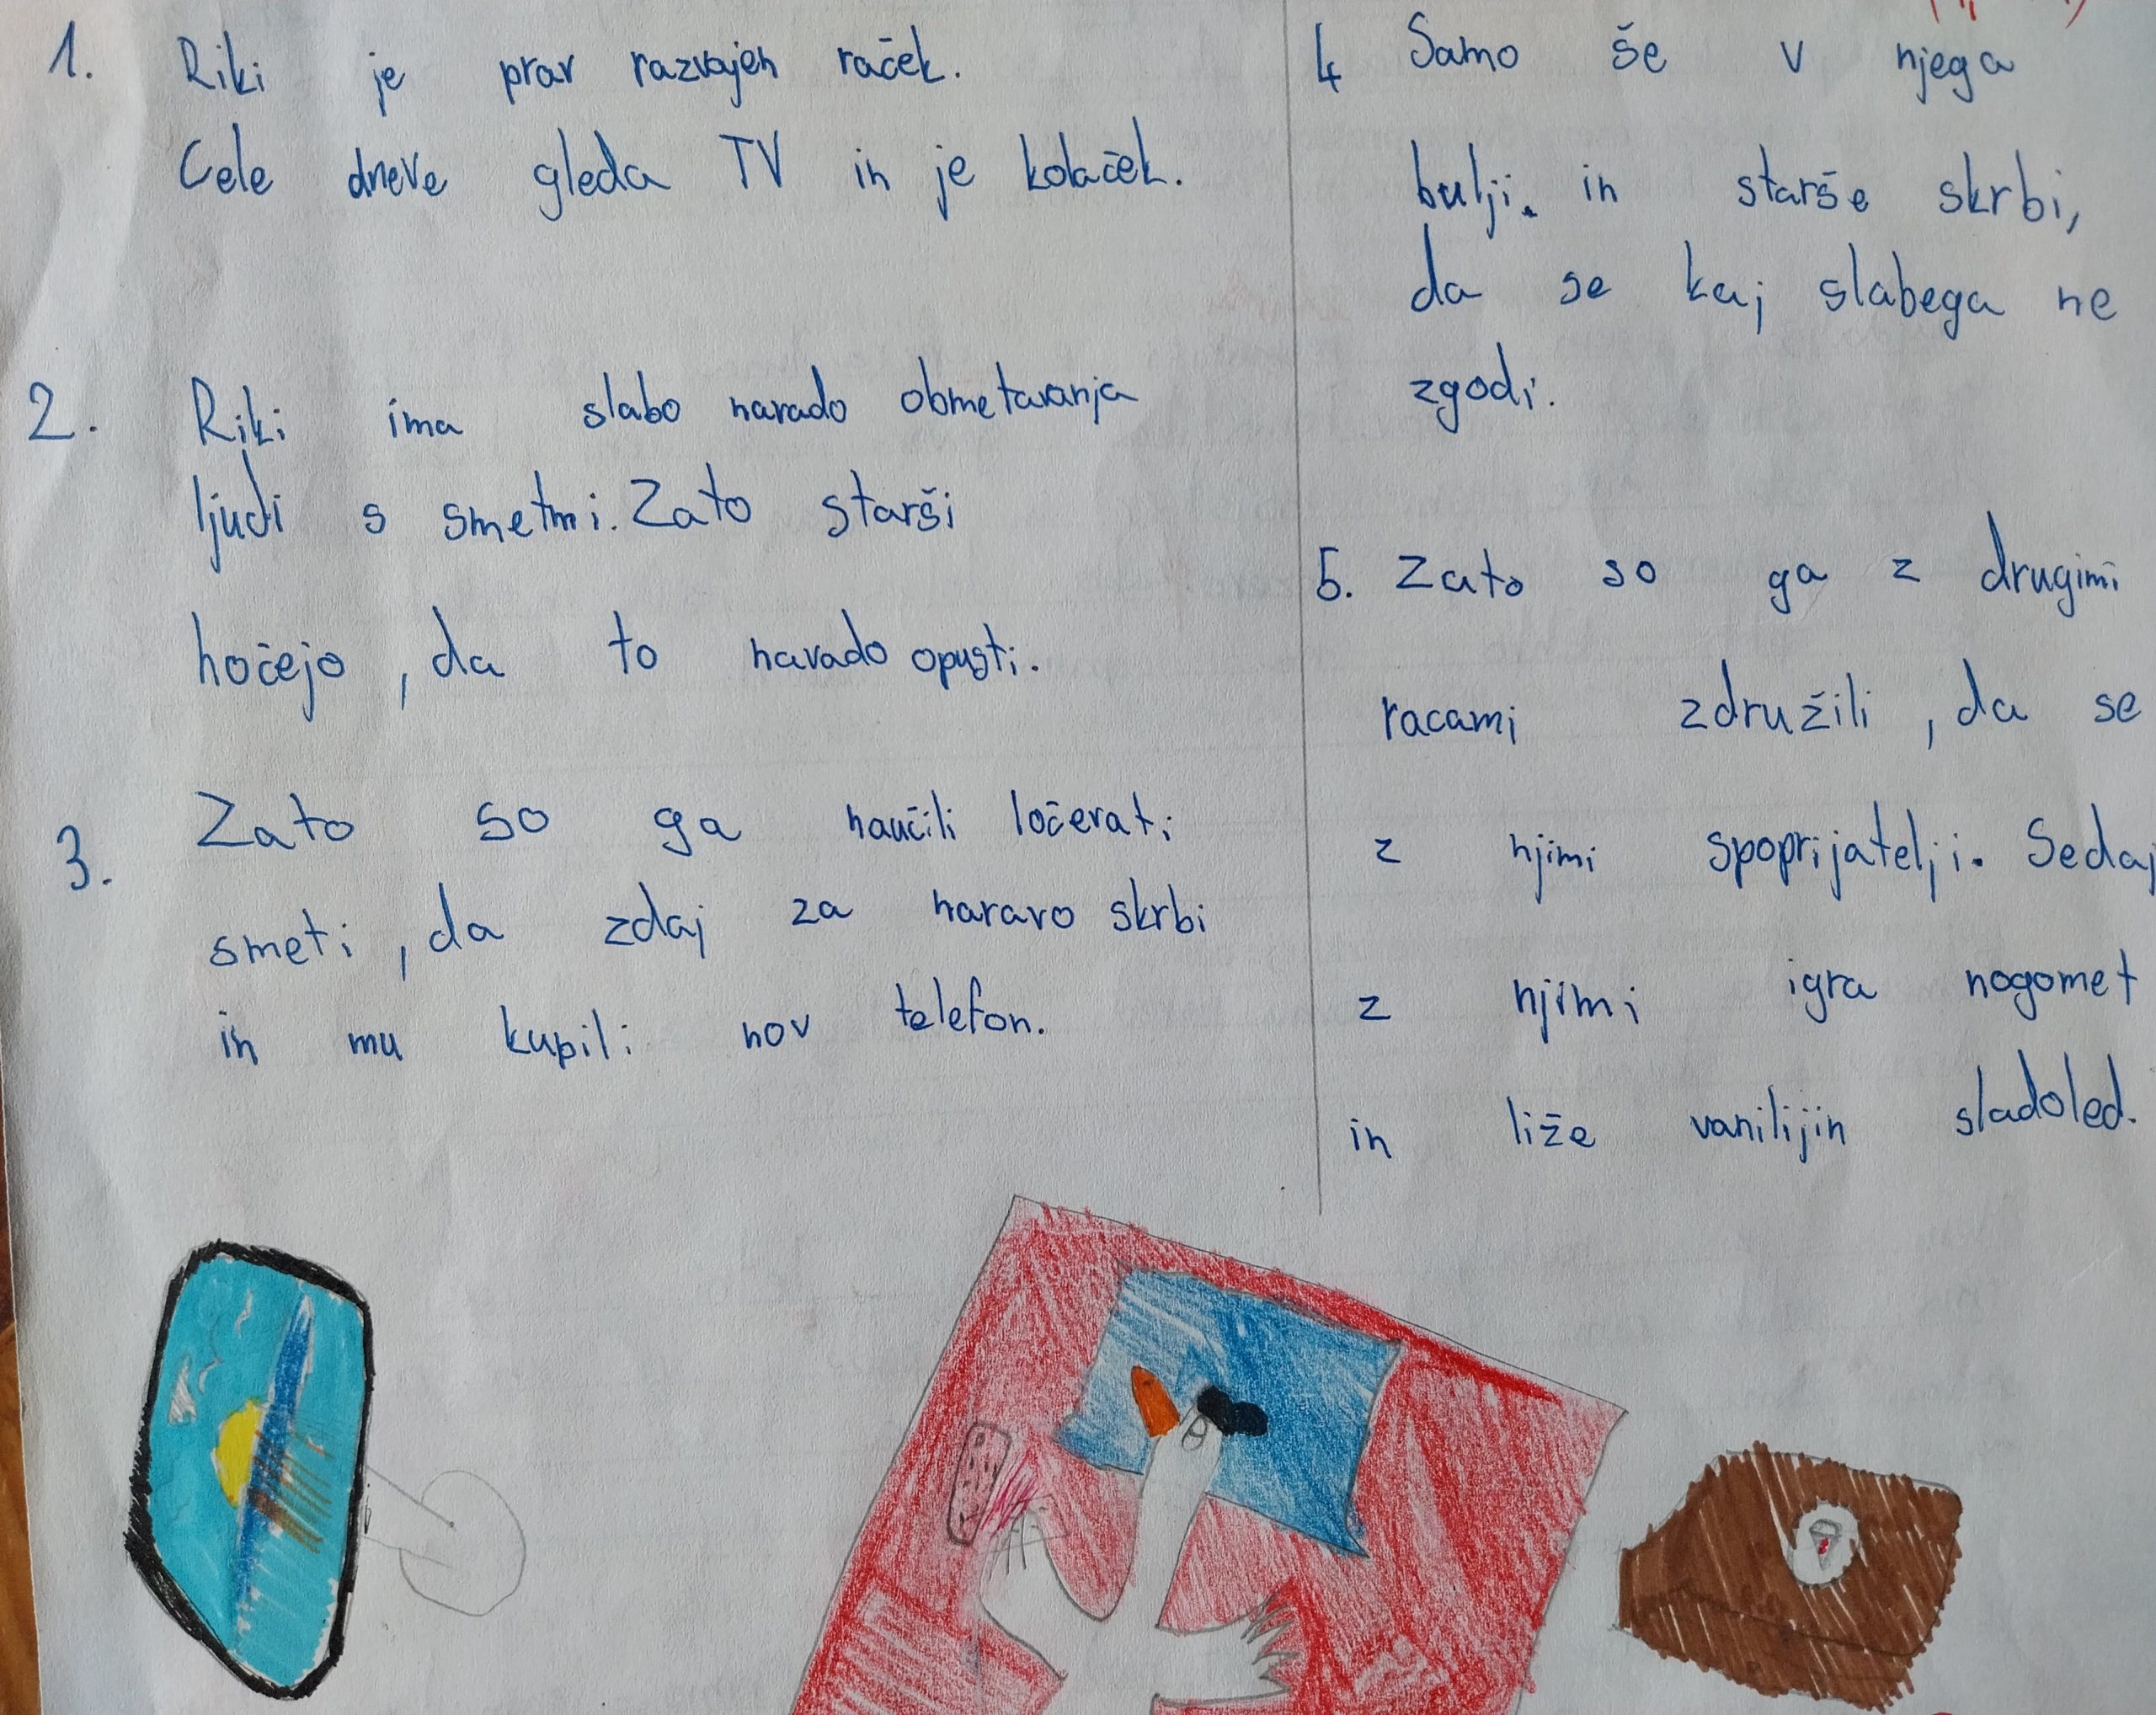 1. Riki je prav razvajen raček.
Cele dneve gleda TV in je kolaček.
2. Riki ima slabo navado obmetavanja
ljudi s smetmi. Zato starši
hočejo, da to navado opusti.
3. Zato so ga naučili ločevati
smeti, da zdaj za naravo skrbi
in mu kupili nov telefon.
4 Samo še v njega
bulji. in starše skrbi,
da se kaj slabega ne
zgodi.
5. Zato so ga z drugimi
racami združili, da se
z njimi spoprijatelji. Sedaj
z njimi igra nogomet
in liže vanilijin sladoled.